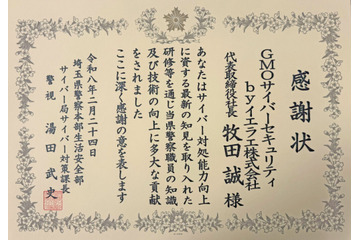 感謝状
GMOサイバーセキュリティ
byイエラエ株式会社
代表取締役社長 牧田誠様
あなたはサイバー対処能力向上
に資する最新の知見を取り入れた
研修等を通じ当県警察職員の知識
及び技術の向上に多大な貢献
をされました
ここに深く感謝の意を表します
令和八年二月二十四日
埼玉県警察本部生活安全部
サイバー局サイバー対策課長
警視 湯田武史